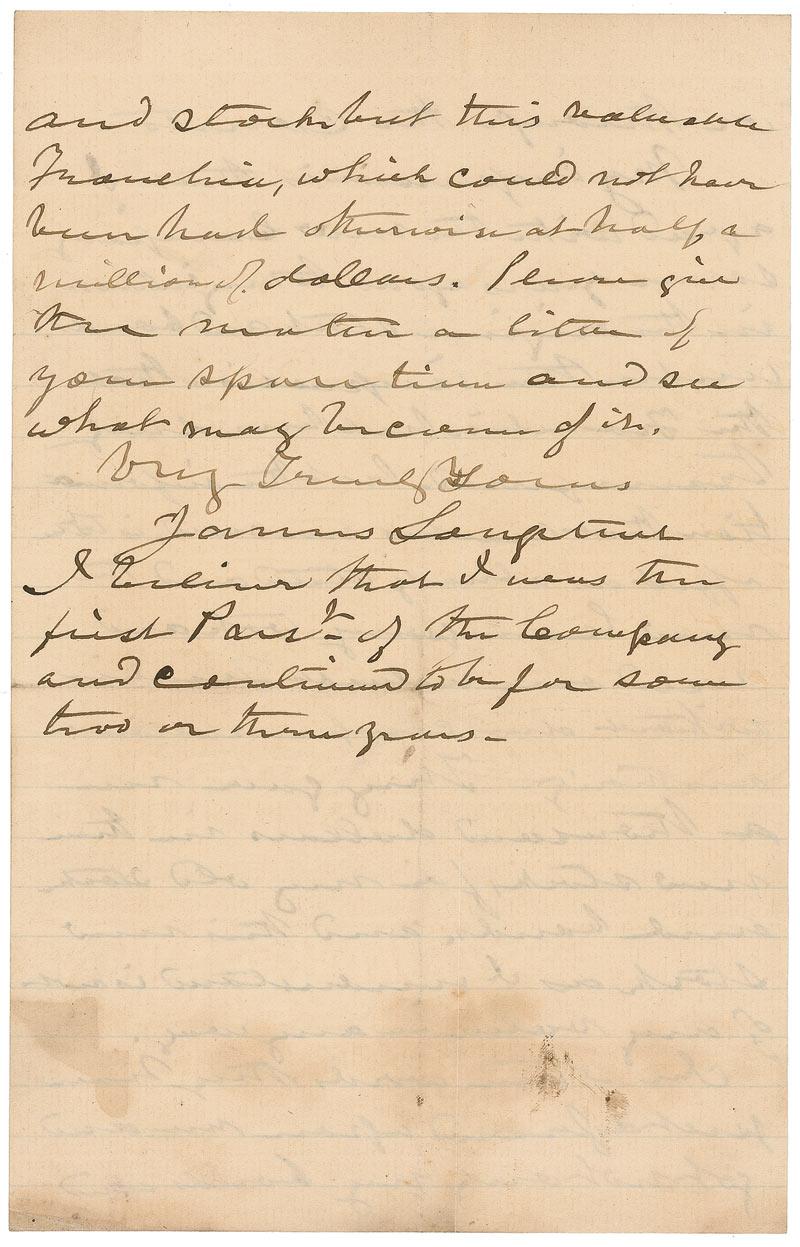 and stock but this valuable
Franchise, which could not have
been had otherwise at half a
million of dollars. Please give
the matter a little of
your spare time and see
what may become of it.
Very Truly Yours
James Longstreet
I believe that I was the
first Pres't of the Company
and continued to be for some
two or three years-